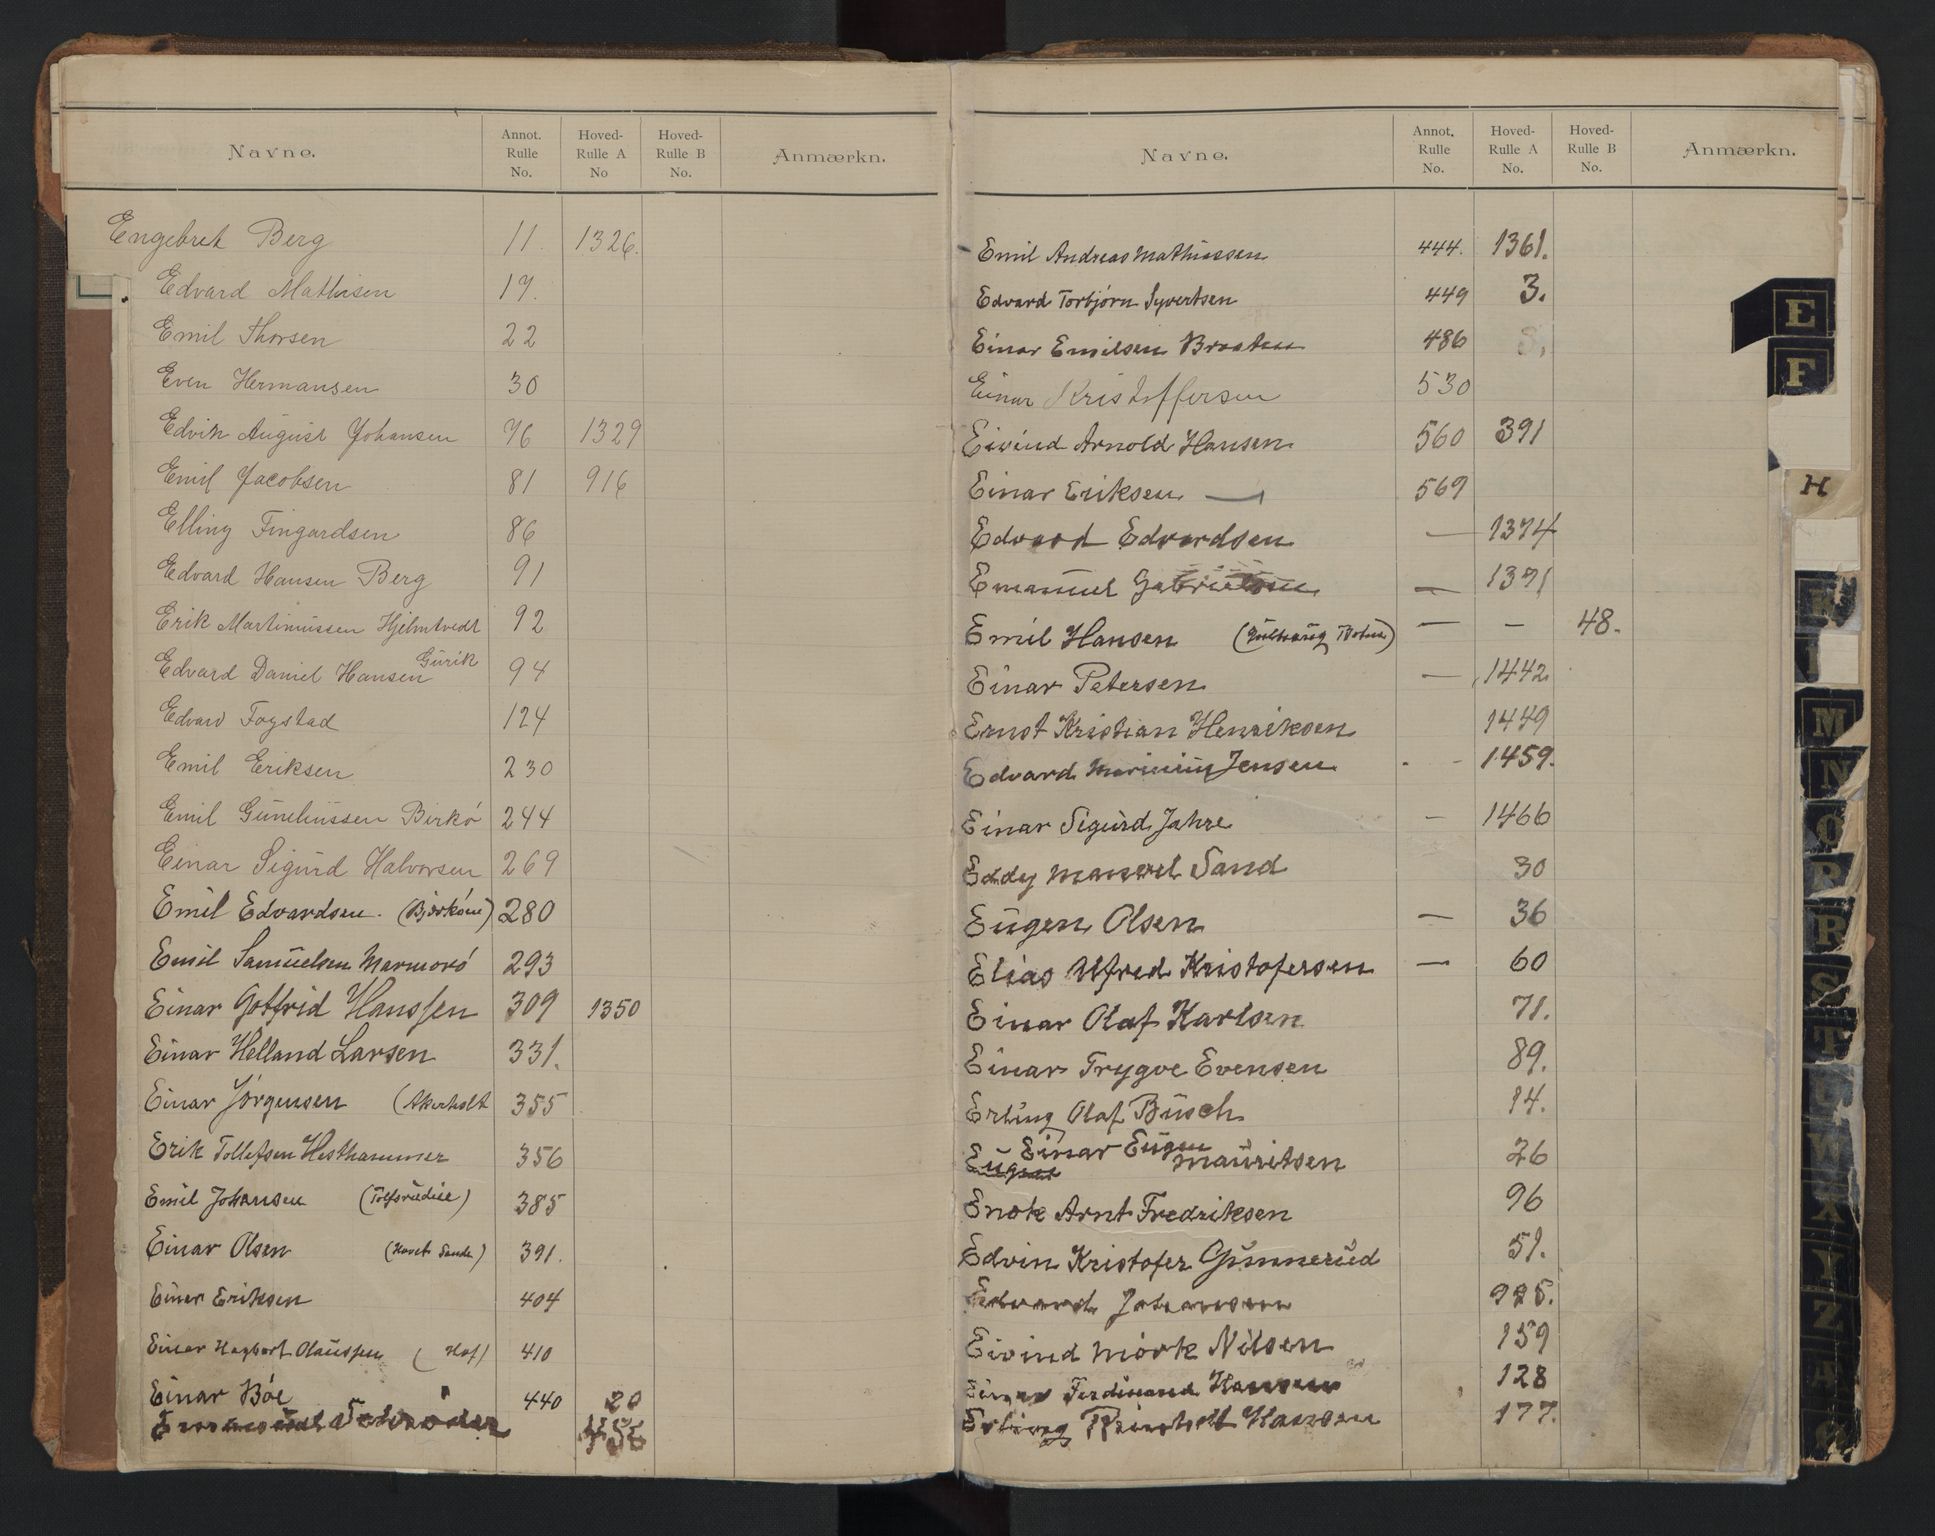 Navne. Annot. Rulle No. Hoved-Rulle A No Hoved-Rulle B No. Anmærkn.
Engebret Berg 11. 1326.
Edvard Mathisen 17.
Emil Thorsen 22
Even Hermansen 30
Edvin August Johansen 76 1329
Emil Jacobsen 81 916
Elling Fingardsen 86
Edvard Hansen Berg 91
Erik Martinussen Hjelmtvedt 92
Edvard Daniel Hansen Gurik 94
Edvard Fogstad 124
Emil Eriksen 230
Emil Gunelиussen Birkö 244
Einar Sigurd Halvorsen 269
Emil Edvardsen. 280
Emil Samuelsen Marmorö 293
Einar Gotfrid Hanssen 309 1350
Einar Helland Larsen 331.
Einar Jörgensen (Akerholt 355
Erik Tollefsen Hesthammer 356
Emil Johansen 385
Einar Olsen (Hovet Sande) 391.
Einar Eriksen 404
Einar Hagbart Olaussen (Hof) 410
Einar Böe 440 20
Schröder
Navne. Annot. Rulle No. Hoved-Rulle A No. Hoved-Rulle B No. Anmærkn.
Emil Andreas Mathiassen 444. 1361.
Edvard Torbjörn Syvertsen 449 3.
Einar Emilsen Braaten 486
Einar Kristoffersen 530
Eivind Arnold Hansen 560 391
Einar Eriksen — 569
Edvard Edvardsen — 1374
Emanuel Gabrielsen — 1371
Emil Hansen — — 48.
Einar Petersen — 1442
Ernst Kristian Henriksen 1449
Edvard Jensen - 1459.
Einar Sigurd Jahre — 1466
Eddy Manuel Sand 30
Eugen Olsen — 36
Elias Alfred Kristofersen — 60
Einar Olaf Karlsen 71.
Einar Trygve Evensen 89.
Erling Olaf Busch 14.
Einar Eugen
Eugen Mauritsen 26
Enok Arnt Fredriksen 96
Edvin Kristofer Gunnerud 51.
Edvard Johansen
Eivind Mörk Nilsen 159
Einar Ferdinand Hansen 128
Erling Reinholt Hansen 177.
E
F
H
K
M
N
O
P
R
S
T
W
X
Y
Z